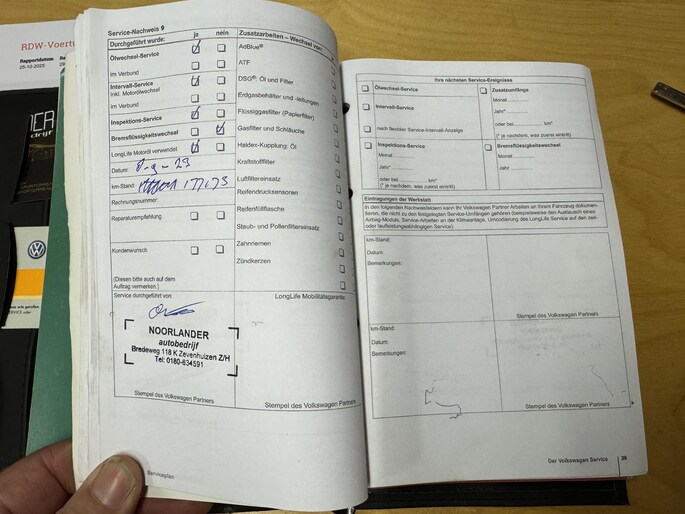 RDW-Voertu
Rapportdatum
25-10-2025
Service-Nachweis 9
Durchgeführt wurde: ja nein
Ölwechsel-Service
im Verbund
Intervall-Service
inkl. Motorölwechsel
im Verbund
Inspektions-Service
Bremsflüssigkeitswechsel
LongLife Motoröl verwendet
Datum: 8-9-23
km-Stand: 177173
Rechnungsnummer:
Reparaturempfehlung
Kundenwunsch
(Diesen bitte auch auf dem
Auftrag vermerken.)
Service durchgeführt von:
NOORLANDER
autobedrijf
Bredeweg 118 K Zevenhuizen Z/H
Tel: 0180-634591
Stempel des Volkswagen Partners
Serviceplan
Zusatzarbeiten – Wechsel von:
AdBlue®
ATF
DSG®: Öl und Filter
Erdgasbehälter und -leitungen
Flüssiggasfilter (Papierfilter)
Gasfilter und Schläuche
Haldex-Kupplung: Öl
Kraftstofffilter
Luftfiltereinsatz
Reifendrucksensoren
Reifenfüllflasche
Staub- und Pollenfiltereinsatz
Zahnriemen
Zündkerzen
LongLife Mobilitätsgarantie:
Stempel des Volkswagen Partners
Ihre nächsten Service-Ereignisse
Ölwechsel-Service
Intervall-Service
nach flexibler Service-Intervall-Anzeige
Zusatzumfänge
Monat
Jahr*
oder bei km*
(* je nachdem, was zuerst eintritt)
Inspektions-Service
Monat
Jahr*
oder bei km*
(* je nachdem, was zuerst eintritt)
Bremsflüssigkeitswechsel
Monat
Jahr
Eintragungen der Werkstatt
In den folgenden Nachweisfeldern kann Ihr Volkswagen Partner Arbeiten an Ihrem Fahrzeug dokumen-
tieren, die nicht zu den festgelegten Service-Umfängen gehören (beispielsweise den Austausch eines
Airbag-Moduls, Service-Arbeiten an der Klimaanlage, Umcodierung des LongLife Service auf den zeit-
oder laufleistungsabhängigen Service).
km-Stand:
Datum:
Bemerkungen:
Stempel des Volkswagen Partners
km-Stand:
Datum:
Bemerkungen:
Stempel des Volkswagen Partners
Der Volkswagen Service 39